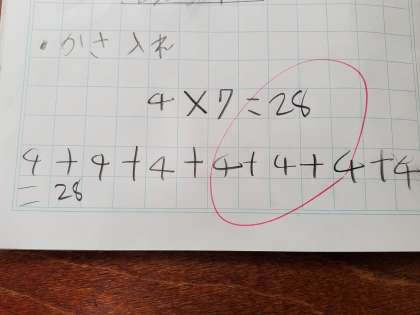 ・かさ入れ
4×7=28
4+4+4+4+4+4+4
=28